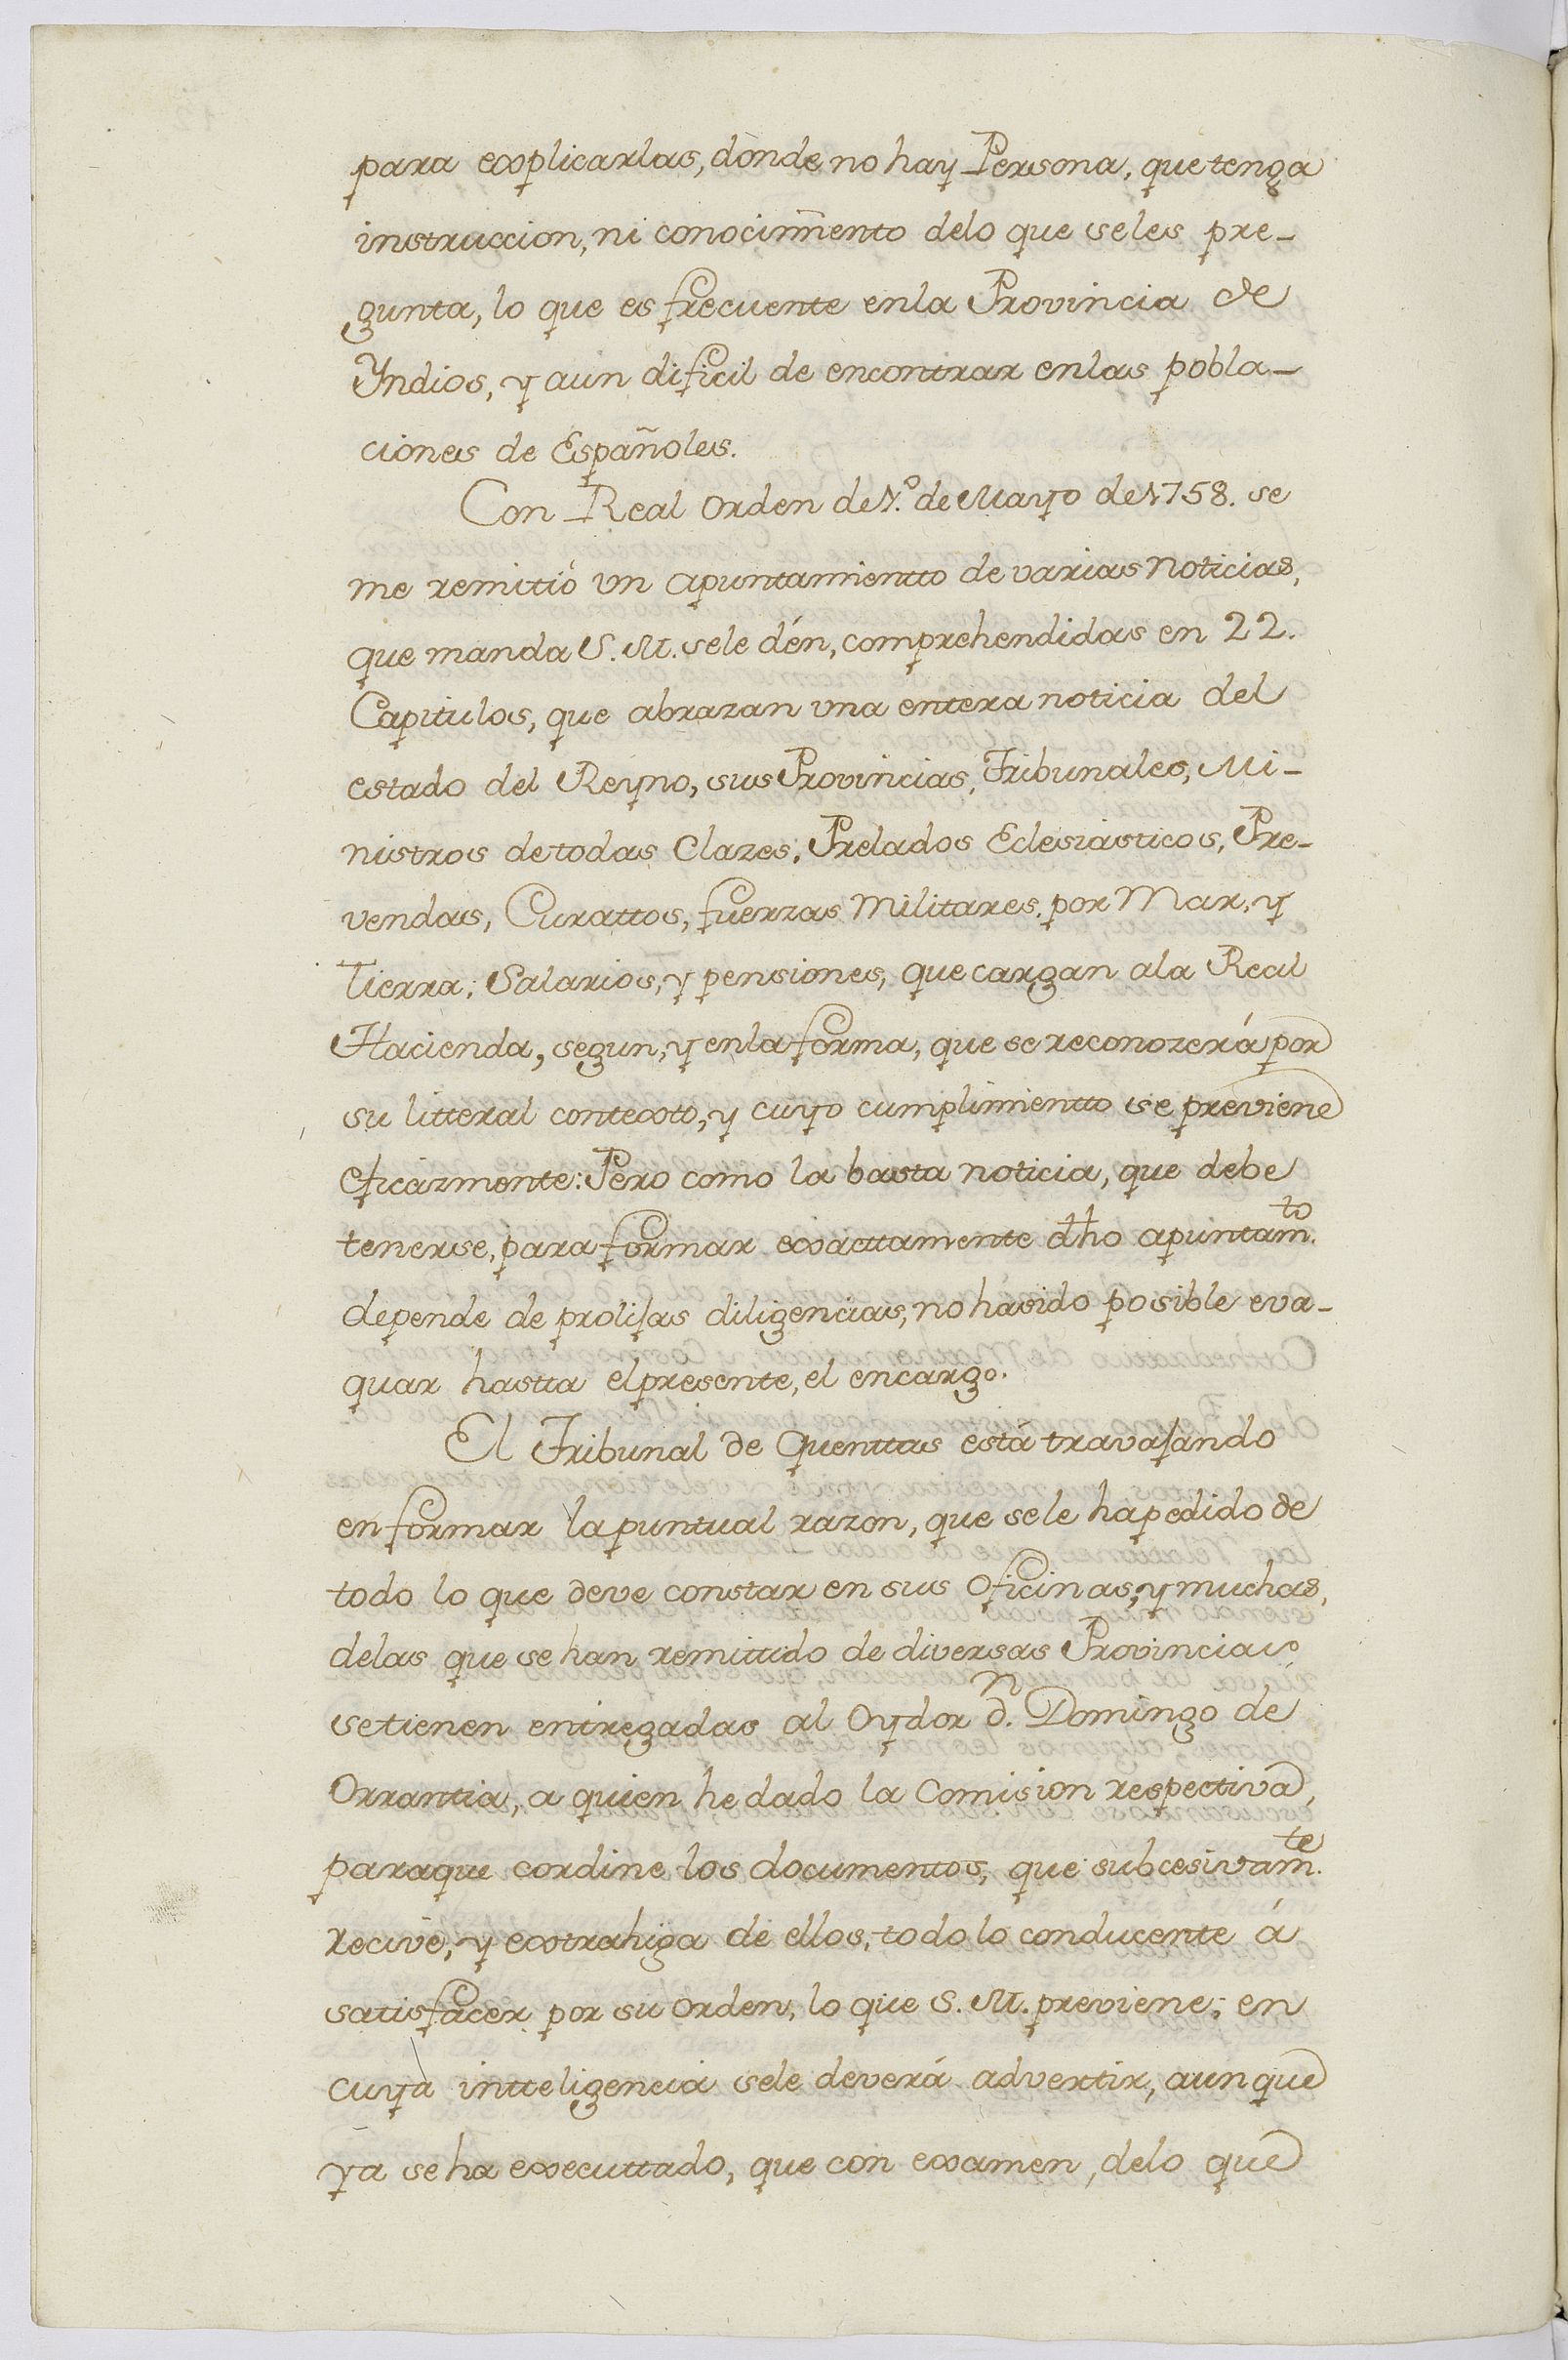 para explicarlas, donde no hay Persona, que tenga
instruccion, ni conocimento delo que seles pre-
gunta, lo que es frecuente enla Provincia de
Yndios, y aun dificil de encontrar enlas pobla-
ciones de Españoles.
Con Real orden de 1.º de Mayo de 1758. se
me remitió vn apuntamientto de varias noticias,
que manda S. M. sele dén, comprehendidas en 22.
Capitulos, que abrazan vna entera noticia del
estado del Reyno, sus Provincias, Tribunales, Mi-
nistros de todas Clazes, Prelados Eclesiásticos, Pre-
vendas, Curattos, fuerzas Militares, por Mar, y
Tierra; Salarios, y pensiones, que cargan ala Real
Hacienda, segun, y enla forma, que se reconozerá por
su litteral contexto, y cuyo cumplimientto se previene
eficazmente: Pero como la basta noticia, que debe
tenerse, para formar exacttamente dho apuntamto.
depende de prolijas diligencias, no há sido posible eva-
quar hastta el presente, el encargo.
El Tribunal de Quenttas está travajando
en formar la puntual razon, que sele ha pedido de
todo lo que deve constar en sus oficinas, y muchas,
delas que se han remittido de diversas Provincias
setienen entregadas al Oydor dn. Domingo de
Orrantia, a quien he dado la Comision respectiva,
paraque cordine los documentos, que subcesivamte.
recive, y extrahiga de ellos, todo lo conducente á
satisfacer por su orden, lo que S. M. previene; en
cuya intteligencia sele deverá advertir, aunque
ya se ha executtado, que con examen, delo que